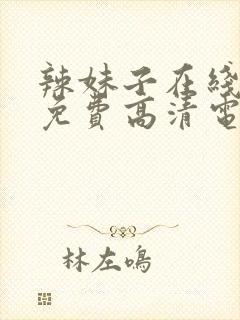 辣妹子在线
免費高清電
林左鳴